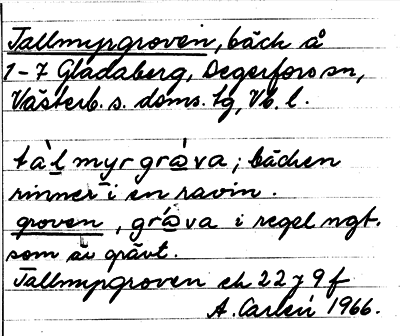 Tallmyrgroven, bäck å
1-7 Gladaberg, Degerfors sn,
Västerb. s. doms. tg, Vb. l.
tàl̲myrgrå̲̀va; bäcken
rinner i en ravin.
groven, grå̲̀va i regel ngt.
som är grävt.
Tallmyrgroven ek 22 J 9 f
A. Carlén 1966.